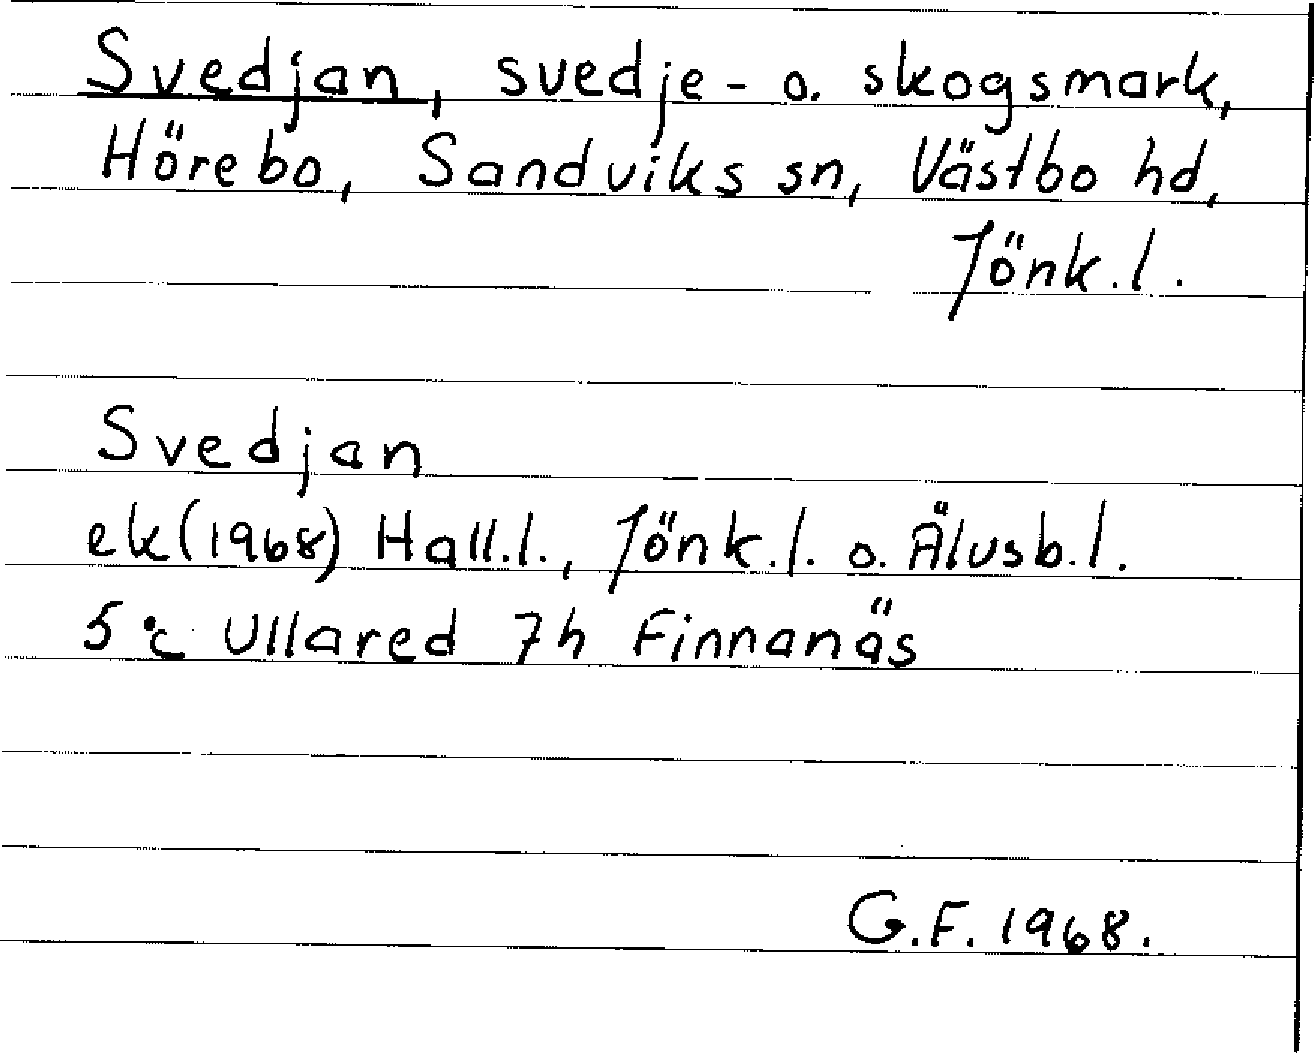 Svedjan, svedje- o. skogsmark,
Hörebo, Sandviks sn, Västbo hd,
Jönk.l.
Svedjan
ek(1968) Hall.l., Jönk.l. o. Älvsb.l.
5 °c Ullared 7h Finnanäs
G.F. 1968.